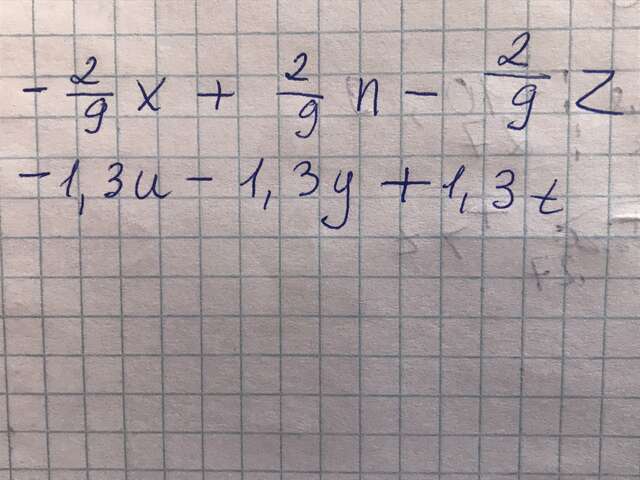 - 2/9 x + 2/9 n - 2/9 z
-1,3u - 1,3y + 1,3t